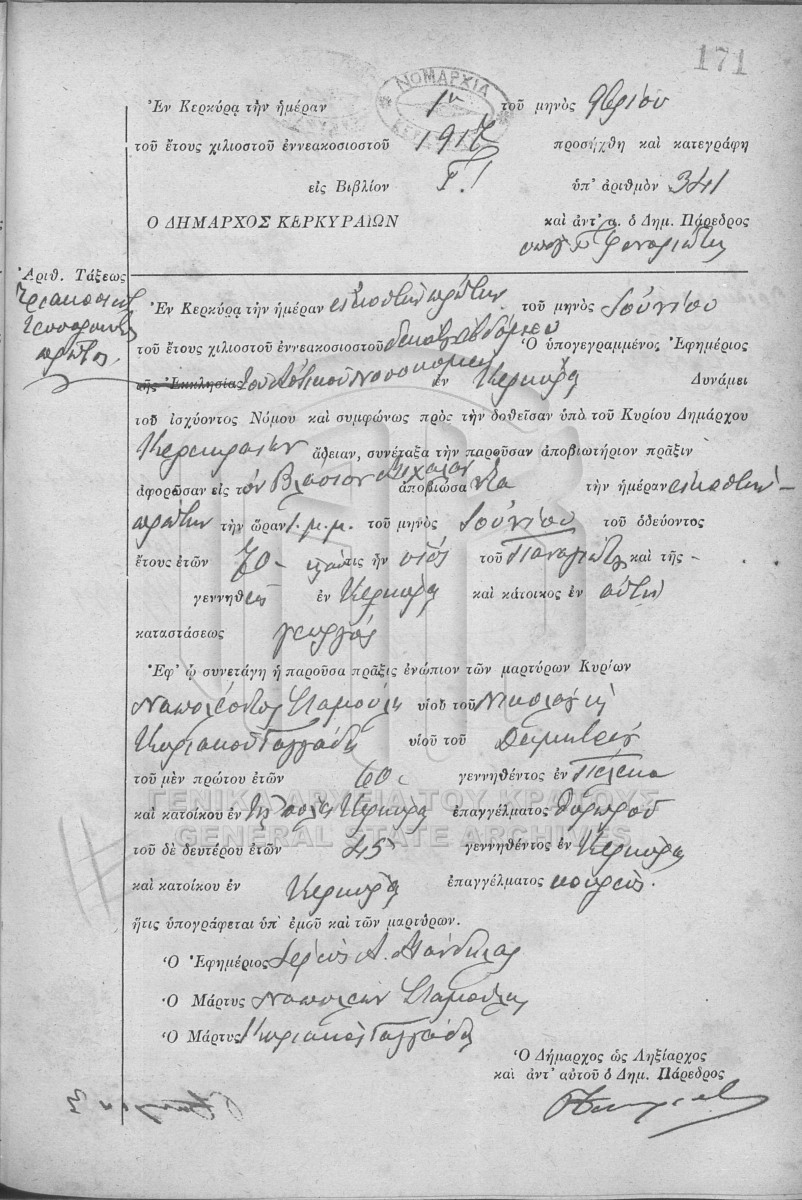 171
ΝΟΜΑΡΧΙΑ
Ἐν Κερκύρᾳ τὴν ἡμέραν 1ην τοῦ μηνὸς 9βρίου
τοῦ ἔτους χιλιοστοῦ ἐννεακοσιοστοῦ 1917 προσήχθη καὶ κατεγράφη
εἰς Βιβλίον Γ΄ ὑπ' ἀριθμὸν 341
Ο ΔΗΜΑΡΧΟΣ ΚΕΡΚΥΡΑΙΩΝ καὶ ἀντ' α. ὁ Δημ. Πάρεδρος
Ἀριθ. Τάξεως
τριακοσιοστὴ
τεσσαρακοστὴ
πρώτη
Ἐν Κερκύρᾳ τὴν ἡμέραν εἰκοστὴν πρώτην τοῦ μηνὸς Ἰουνίου
τοῦ ἔτους χιλιοστοῦ ἐννεακοσιοστοῦ δεκάτου ἑβδόμου Ὁ ὑπογεγραμμένος Ἐφημέριος
τῆς Ἐκκλησίας τοῦ Ἀστικοῦ Νοσοκομείου ἐν Κερκύρᾳ Δυνάμει
τοῦ ἰσχύοντος Νόμου καὶ συμφώνως πρὸς τὴν δοθεῖσαν ὑπὸ τοῦ Κυρίου Δημάρχου
Κερκυραίων ἄδειαν, συνέταξα τὴν παροῦσαν ἀποβιωτήριον πρᾶξιν
ἀφορῶσαν εἰς τὸν Βλάσιον ἀποβιώσαντα τὴν ἡμέραν εἰκοστὴν
πρώτην τὴν ὥραν 1 μ.μ. τοῦ μηνὸς Ἰουνίου τοῦ ὁδεύοντος
ἔτους ἐτῶν 70 ὅστις ἦν υἱὸς τοῦ Παναγιώτη καὶ τῆς -
γεννηθεὶς ἐν Κερκύρᾳ καὶ κάτοικος ἐν αὐτῇ
καταστάσεως γεωργός
Ἐφ' ᾧ συνετάγη ἡ παροῦσα πρᾶξις ἐνώπιον τῶν μαρτύρων Κυρίων
Ναπολέοντος Σταμούλη υἱοῦ τοῦ Νικολάου
Κυριακοῦ Γαγγάδη υἱοῦ τοῦ Δημητρίου
τοῦ μὲν πρώτου ἐτῶν 60 γεννηθέντος ἐν Πέλεκα
ΓΕΝΙΚΑ ΑΡΧΕΙΑ ΤΟΥ ΚΡΑΤΟΥΣ
καὶ κατοίκου ἐν τῇ πόλει Κερκύρᾳ ἐπαγγέλματος θυρωροῦ
GENERAL STATE ARCHIVES
τοῦ δὲ δευτέρου ἐτῶν 45 γεννηθέντος ἐν Κερκύρᾳ
καὶ κατοίκου ἐν Κερκύρᾳ ἐπαγγέλματος κουρεύς.
ἥτις ὑπογράφεται ὑπ' ἐμοῦ καὶ τῶν μαρτύρων.
Ὁ Ἐφημέριος Ἱερεὺς Α.
Ὁ Μάρτυς Ναπολέων Σταμούλης
Ὁ Μάρτυς Κυριακὸς Γαγγάδης
Ὁ Δήμαρχος ὡς Ληξίαρχος
καὶ ἀντ' αὐτοῦ ὁ Δημ. Πάρεδρος